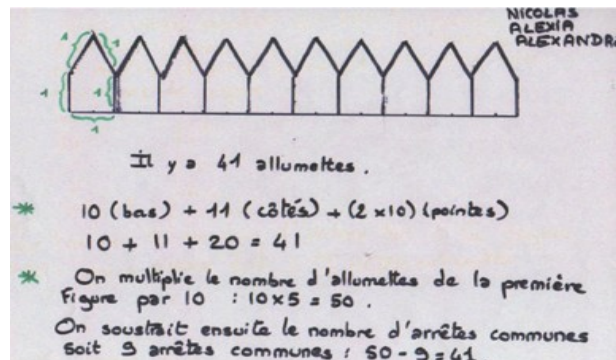 NICOLAS
ALEXIA
ALEXANDRA
1 1
1 1
1
Il y a 41 allumettes.
* 10 (bas) + 11 (côtés) + (2 x 10) (pointes)
10 + 11 + 20 = 41
* On multiplie le nombre d'allumettes de la première
figure par 10 : 10 x 5 = 50.
On soustrait ensuite le nombre d'arrêtes communes
soit 9 arrêtes communes : 50 - 9 = 41